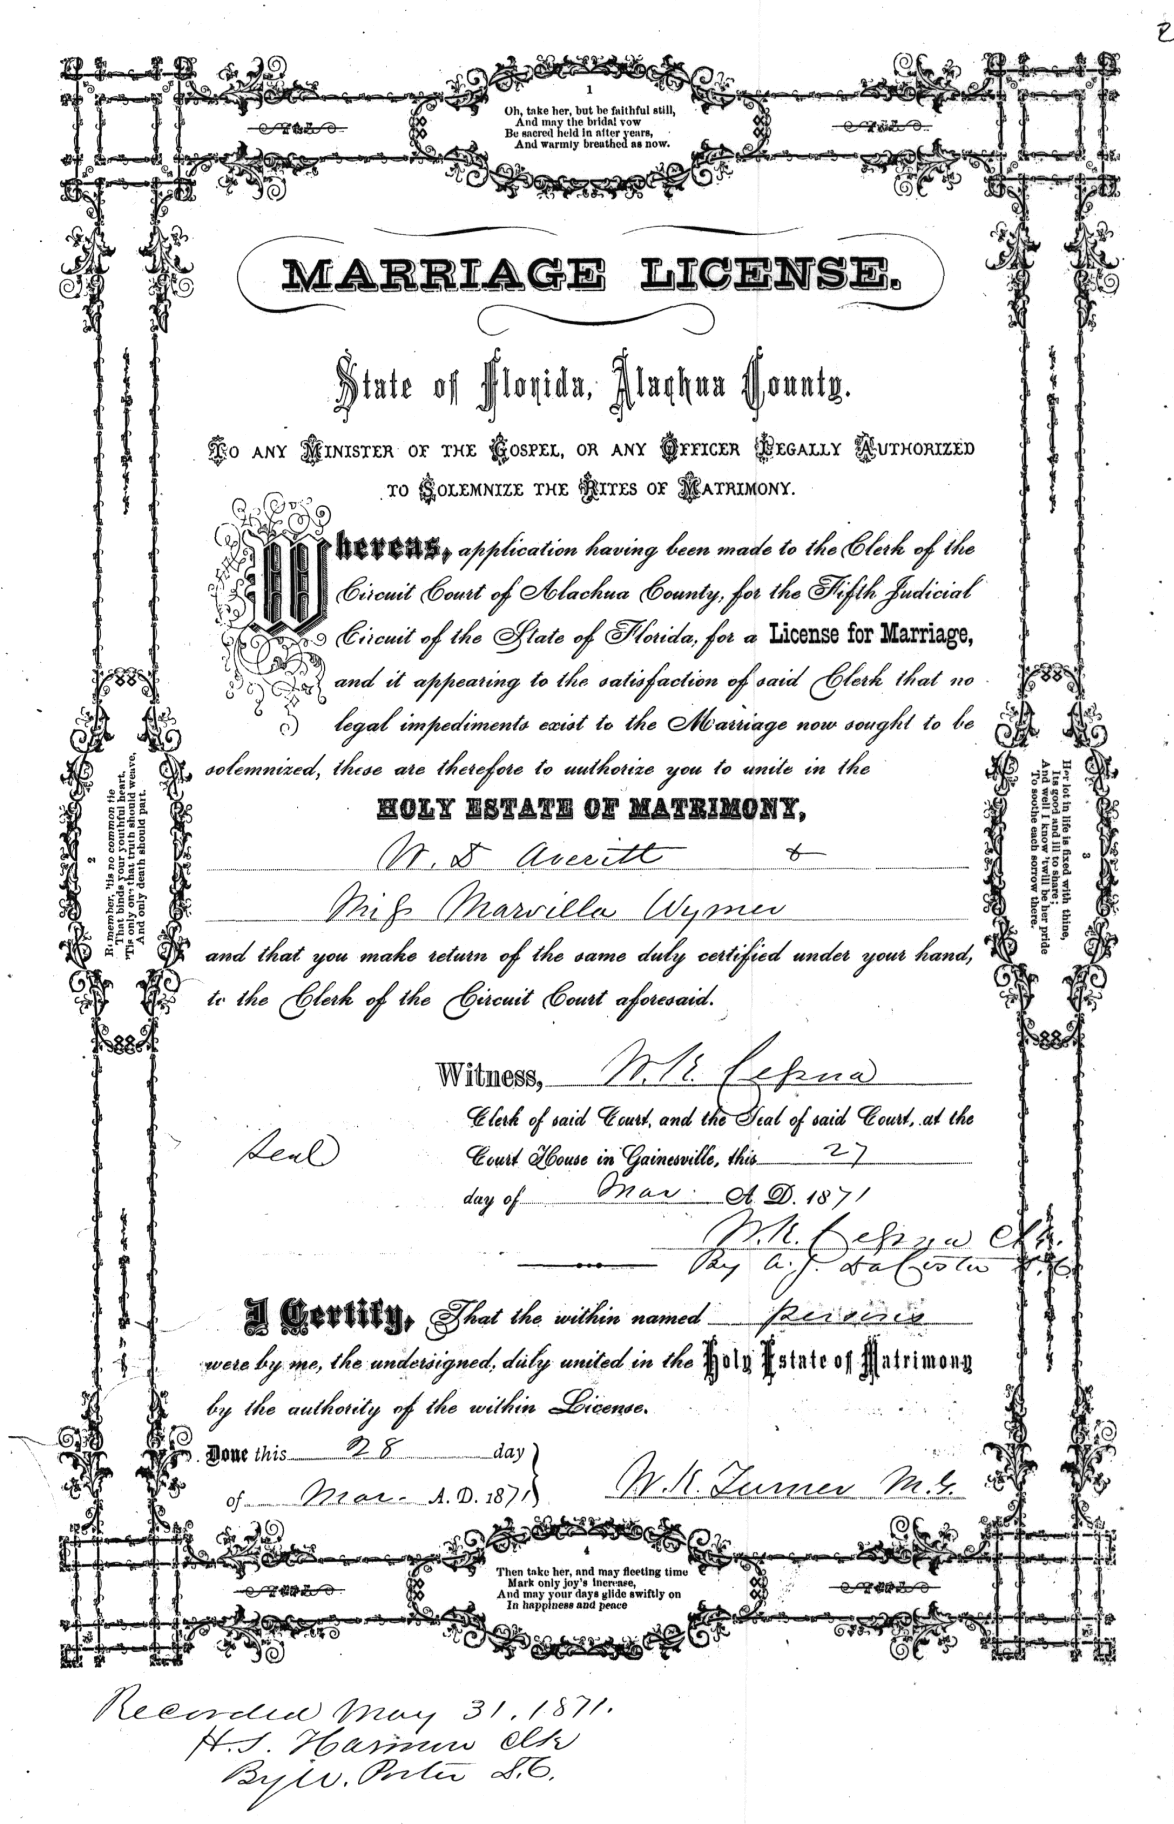 1
Oh, take her, but be faithful still,
And may the bridal vow
Be sacred held in after years,
And warmly breathed as now.
MARRIAGE LICENSE.
State of Florida, Alachua County.
TO ANY MINISTER OF THE GOSPEL, OR ANY OFFICER LEGALLY AUTHORIZED
TO SOLEMNIZE THE RITES OF MATRIMONY.
Whereas, application having been made to the Clerk of the
Circuit Court of Alachua County, for the Fifth Judicial
Circuit of the State of Florida, for a License for Marriage,
and it appearing to the satisfaction of said Clerk that no
legal impediments exist to the Marriage now sought to be
solemnized, these are therefore to authorize you to unite in the
HOLY ESTATE OF MATRIMONY,
W. D Averitt &
Miss Marvilla Wymer
and that you make return of the same duly certified under your hand,
to the Clerk of the Circuit Court aforesaid.
Witness, W. K. Cessna
Clerk of said Court, and the Seal of said Court, at the
Seal
Court House in Gainesville, this 27
day of Mar. A. D. 1871
W. K. Cessna Clk.
By A. J. D. C.
I Certify, That the within named persons
were by me, the undersigned, duly united in the Holy Estate of Matrimony
by the authority of the within License.
Done this 28 day
of Mar. A. D. 1871
W. K. Turner M. G.
2
Remember, 'tis no common tie
That binds your youthful heart,
'Tis only one that truth should weave,
And only death should part.
3
Her lot in life is fixed with thine,
Its good and ill to share;
And well I know 'twill be her pride
To soothe each sorrow there.
4
Then take her, and may fleeting time
Mark only joy's increase,
And may your days glide swiftly on
In happiness and peace
Recorded May 31, 1871.
H. S. Harmon Clk
By W. Porter D. C.